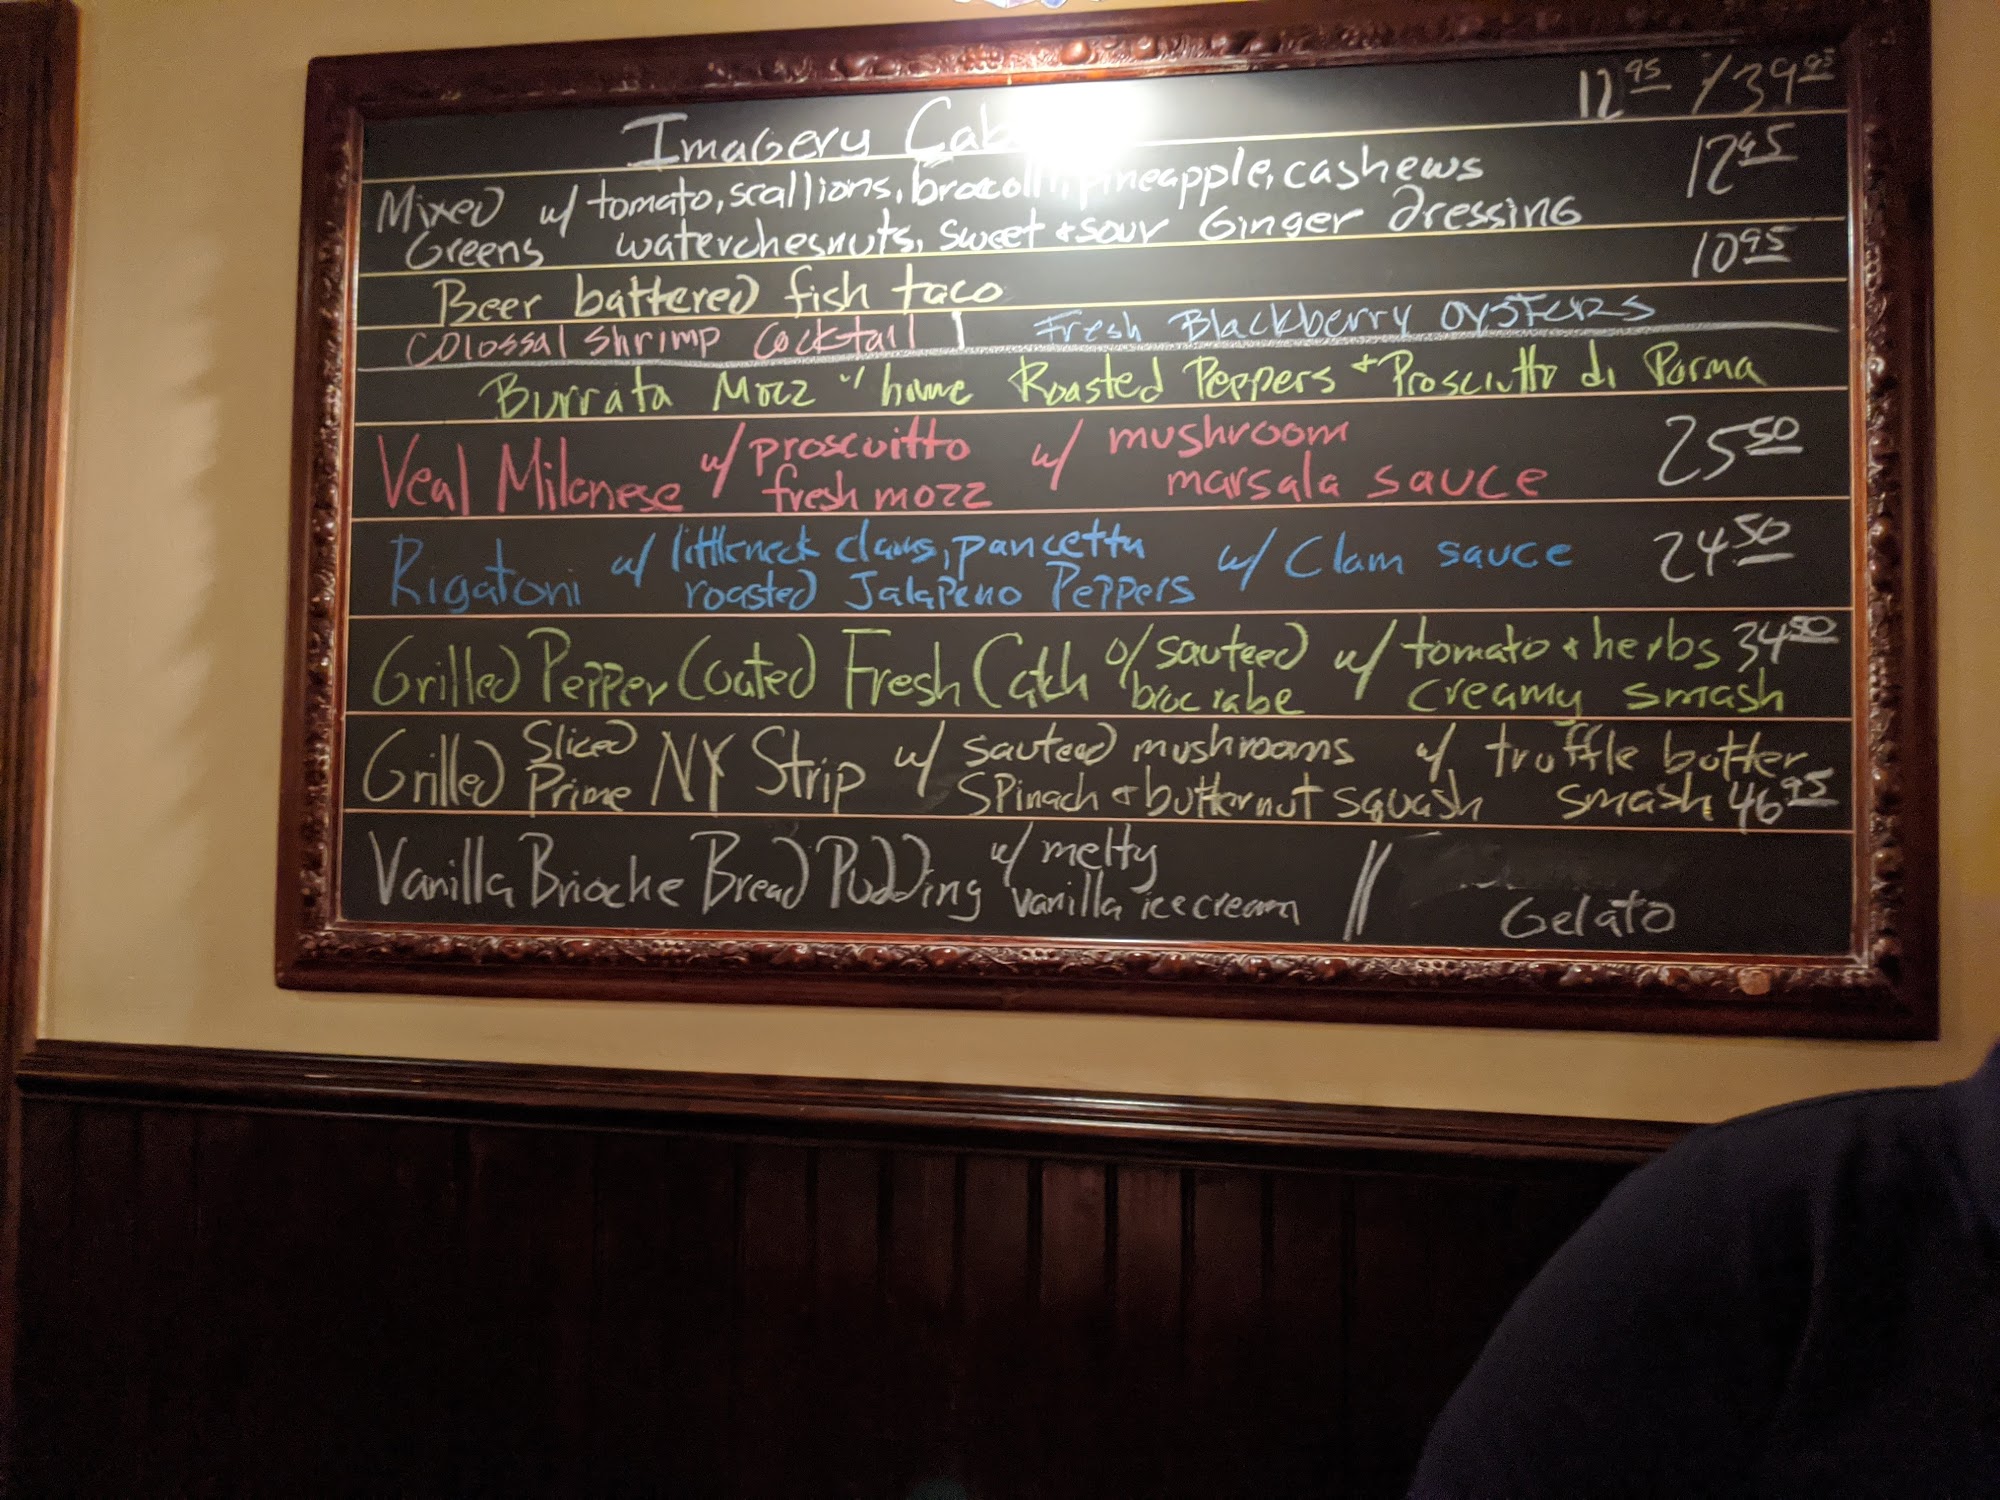 Imagery Cab 12 95 / 39 95
Mixed w/ tomato, scallions, brocolli, pineapple, cashews 12 95
Greens waterchesnuts, sweet + sour Ginger dressing
Beer battered fish taco 10 95
Colossal shrimp cocktail | Fresh Blackberry oysters
Burrata Mozz w/ home Roasted Peppers + Prosciutto di Parma
Veal Milanese w/ proscuitto w/ mushroom 25 50
fresh mozz marsala sauce
Rigatoni w/ littleneck clams, pancetta w/ Clam sauce 24 50
roasted Jalapeno Peppers
Grilled Pepper Coated Fresh Catch o/ sauteed w/ tomato + herbs 34 50
broc rabe creamy smash
Grilled Sliced NY Strip w/ sauteed mushrooms w/ truffle butter
Prime spinach + butternut squash smash 46 95
Vanilla Brioche Bread Pudding w/ melty //
vanilla ice cream Gelato